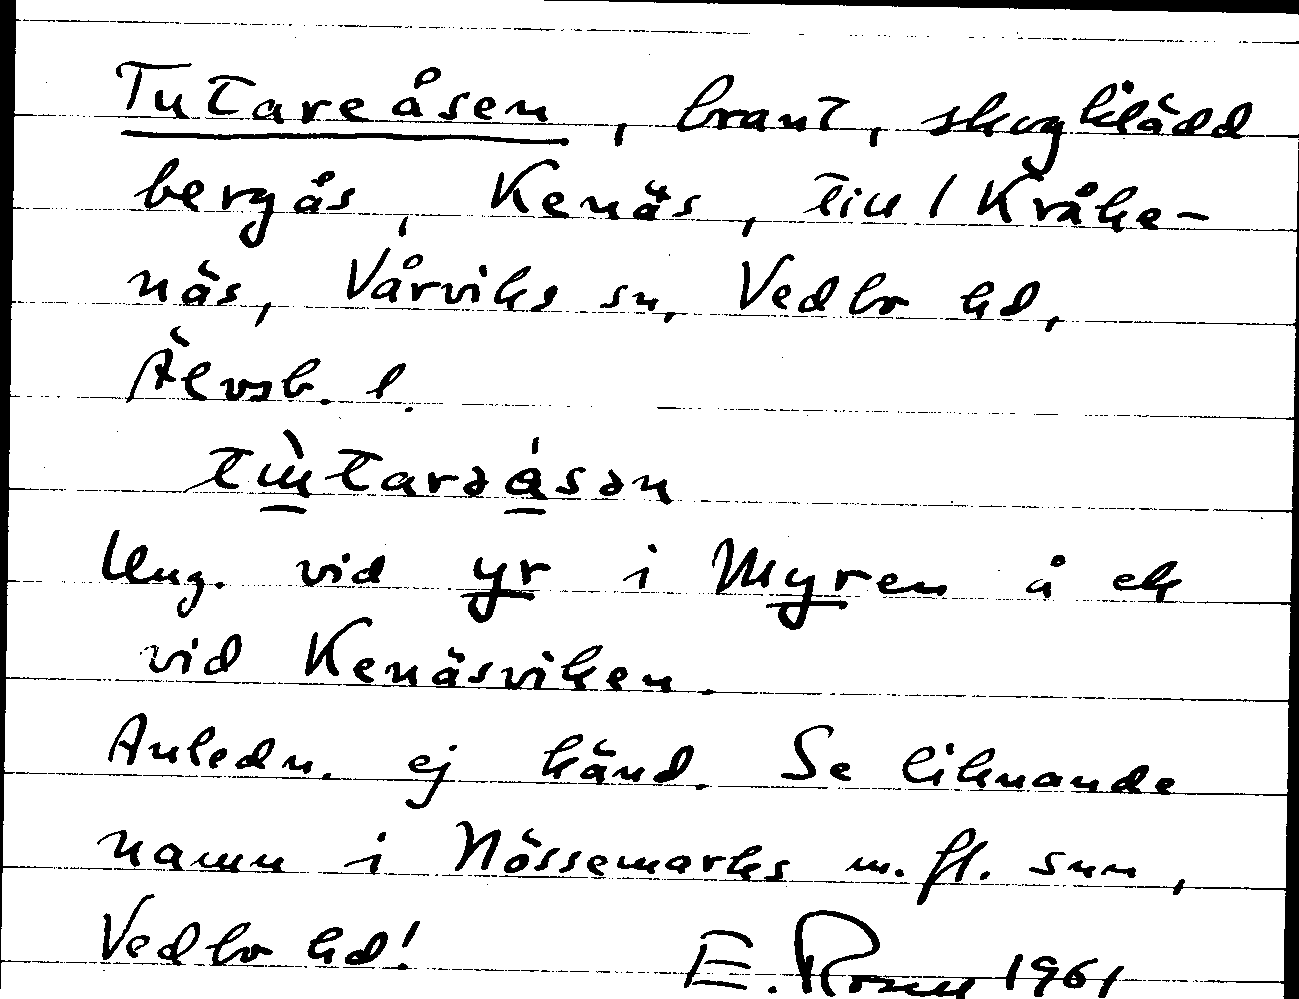 Tutareåsen, brant, skogklädd
bergås, Kenäs, till 1 Kråke-
näs, Vårviks sn, Vedbo hd,
Älvsb. l.
tù̱tarəǻ̱sən
Ung. vid yr i Myren å ek
vid Kenäsviken.
Anledn. ej känd. Se liknande
namn i Nössemarks m.fl. snn,
Vedbo hd!
E. 1961